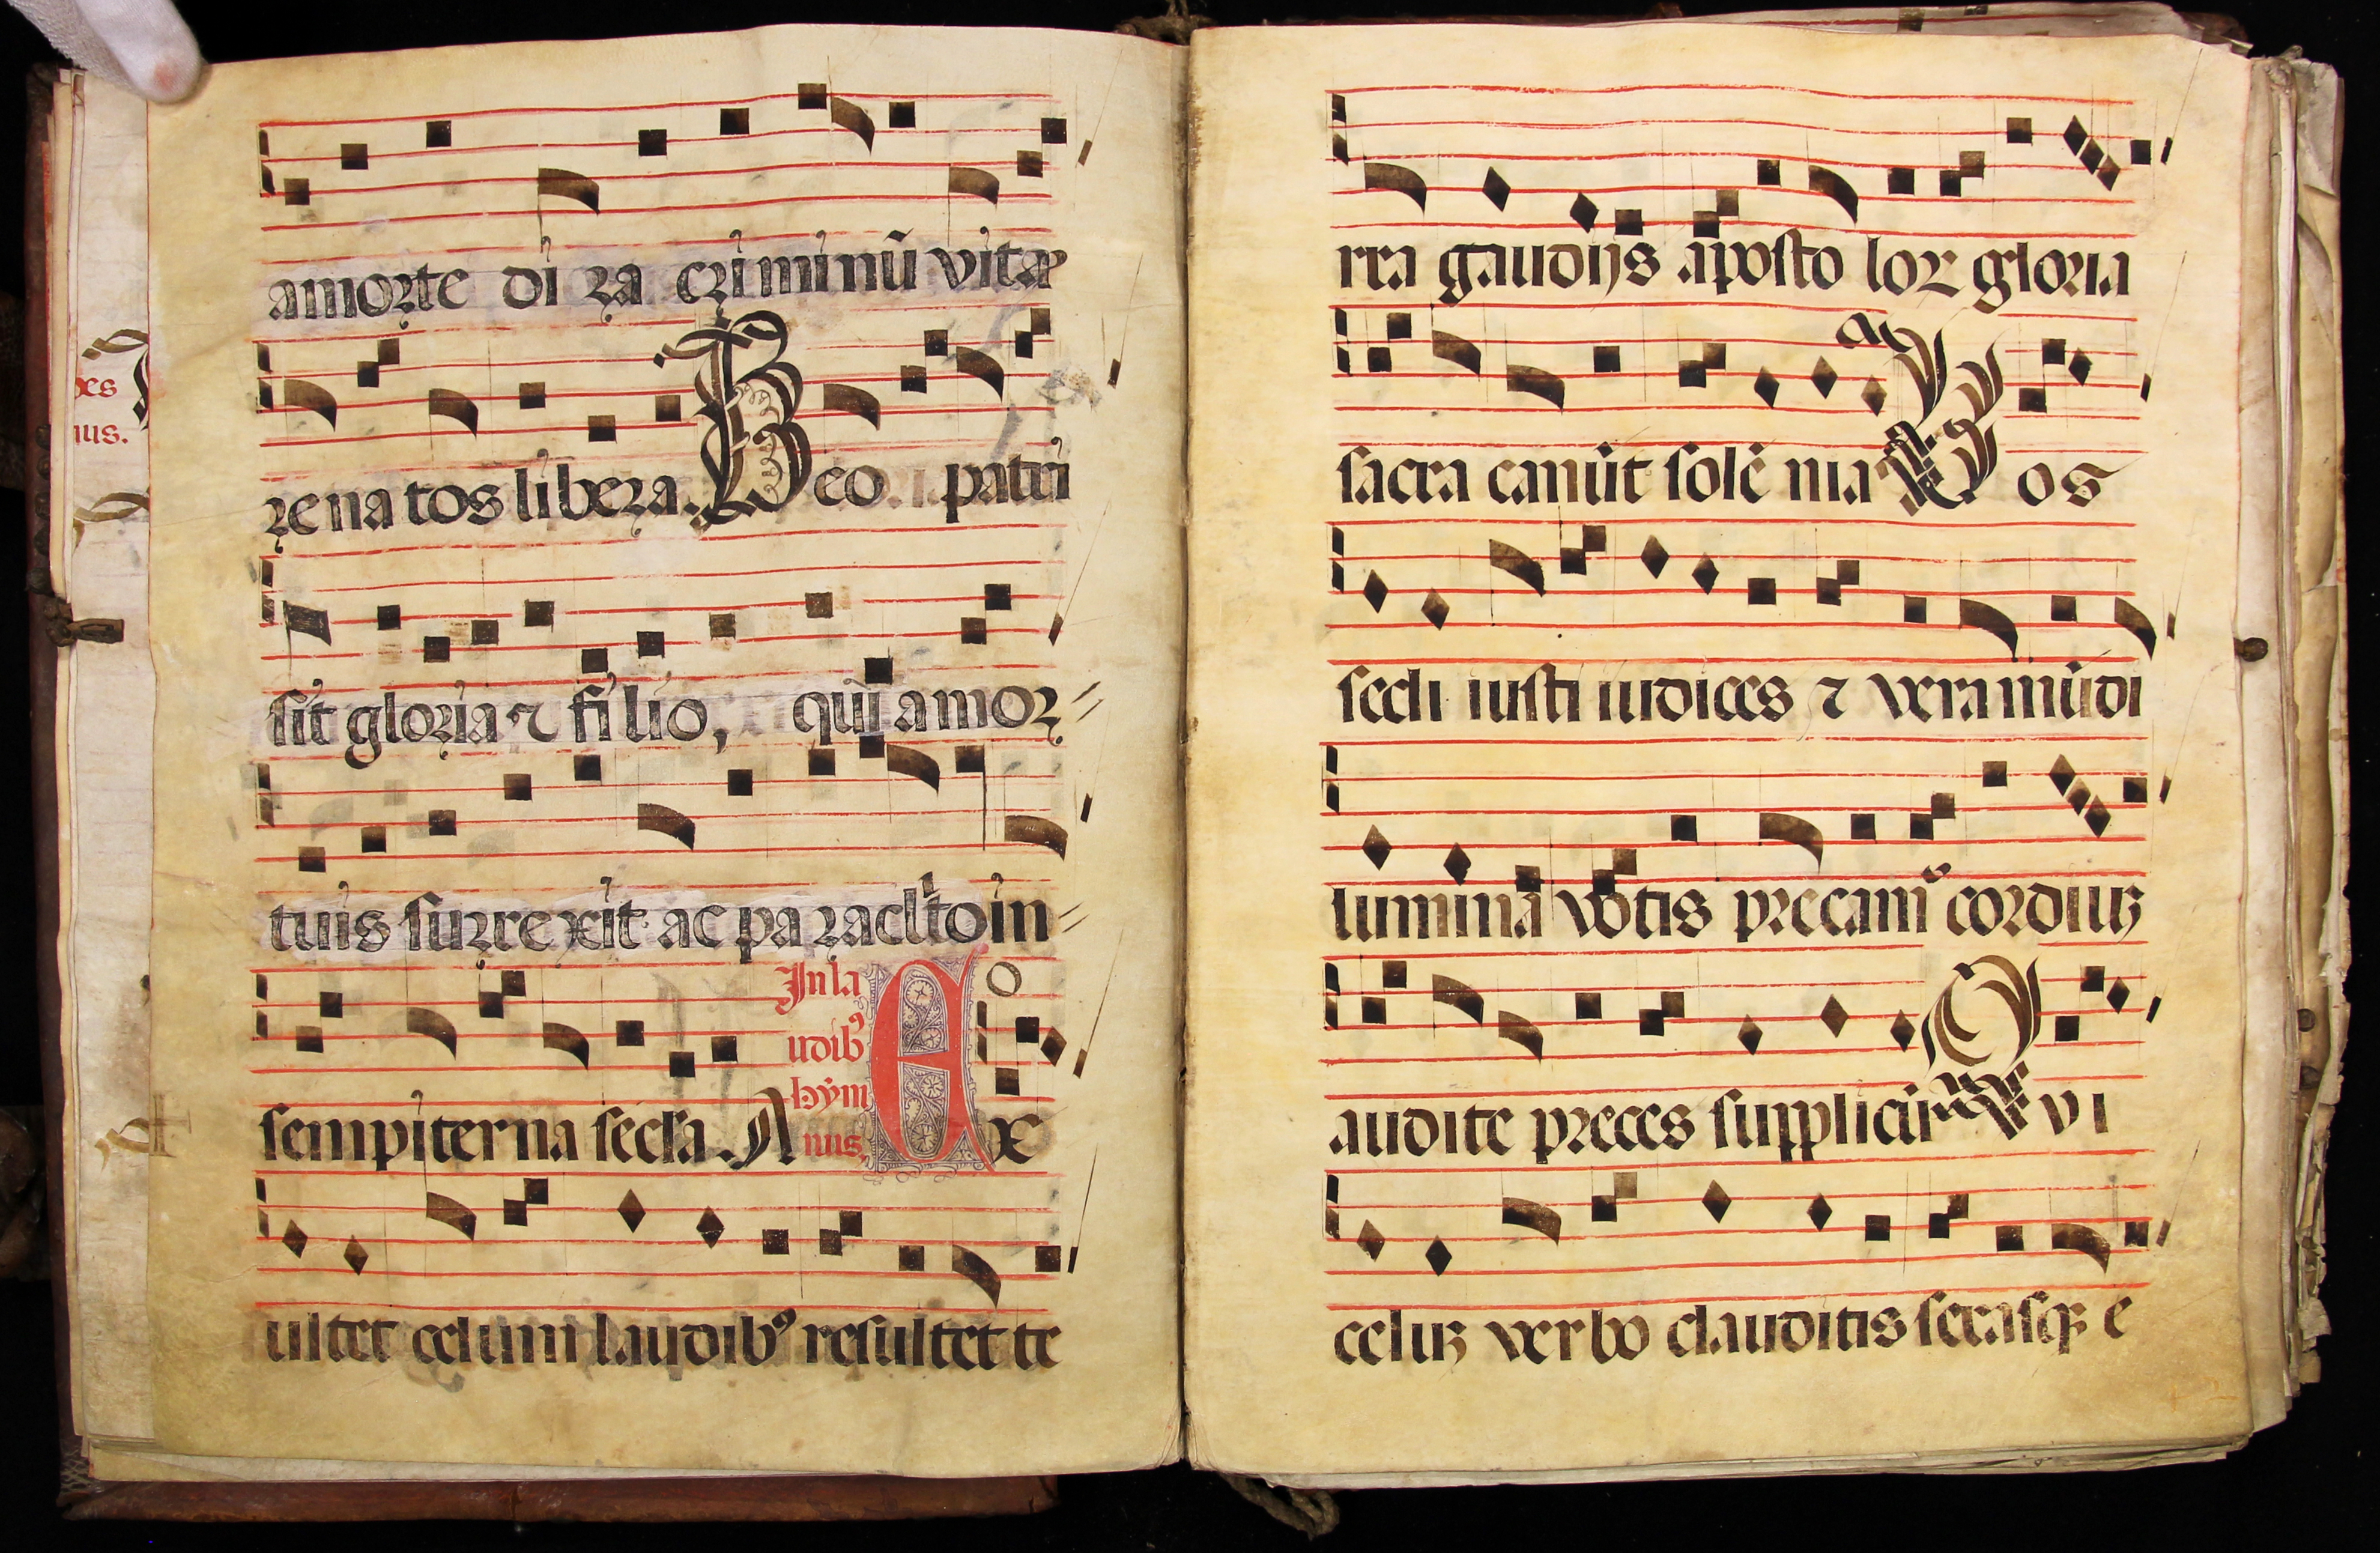 xes
nus.
amorte di ra criminũ vitæ
renatos libera. Deo patri
sit gloria ⁊ filio, qui amor
tuis surrexit ac paraclito in
sempiterna secla. A
In la
udibꝰ
hỹm
nus.
Ex
ultet celum laudibꝰ resultet te
rra gaudijs aposto lor gloria
sacra canũt solẽ nia Vos
secli iusti iudices ⁊ vera mũdi
lumina votis precamꝰ cordiuʒ
audite preces supplicũ Qvi
celuʒ verbo clauditis serasqꝫ e